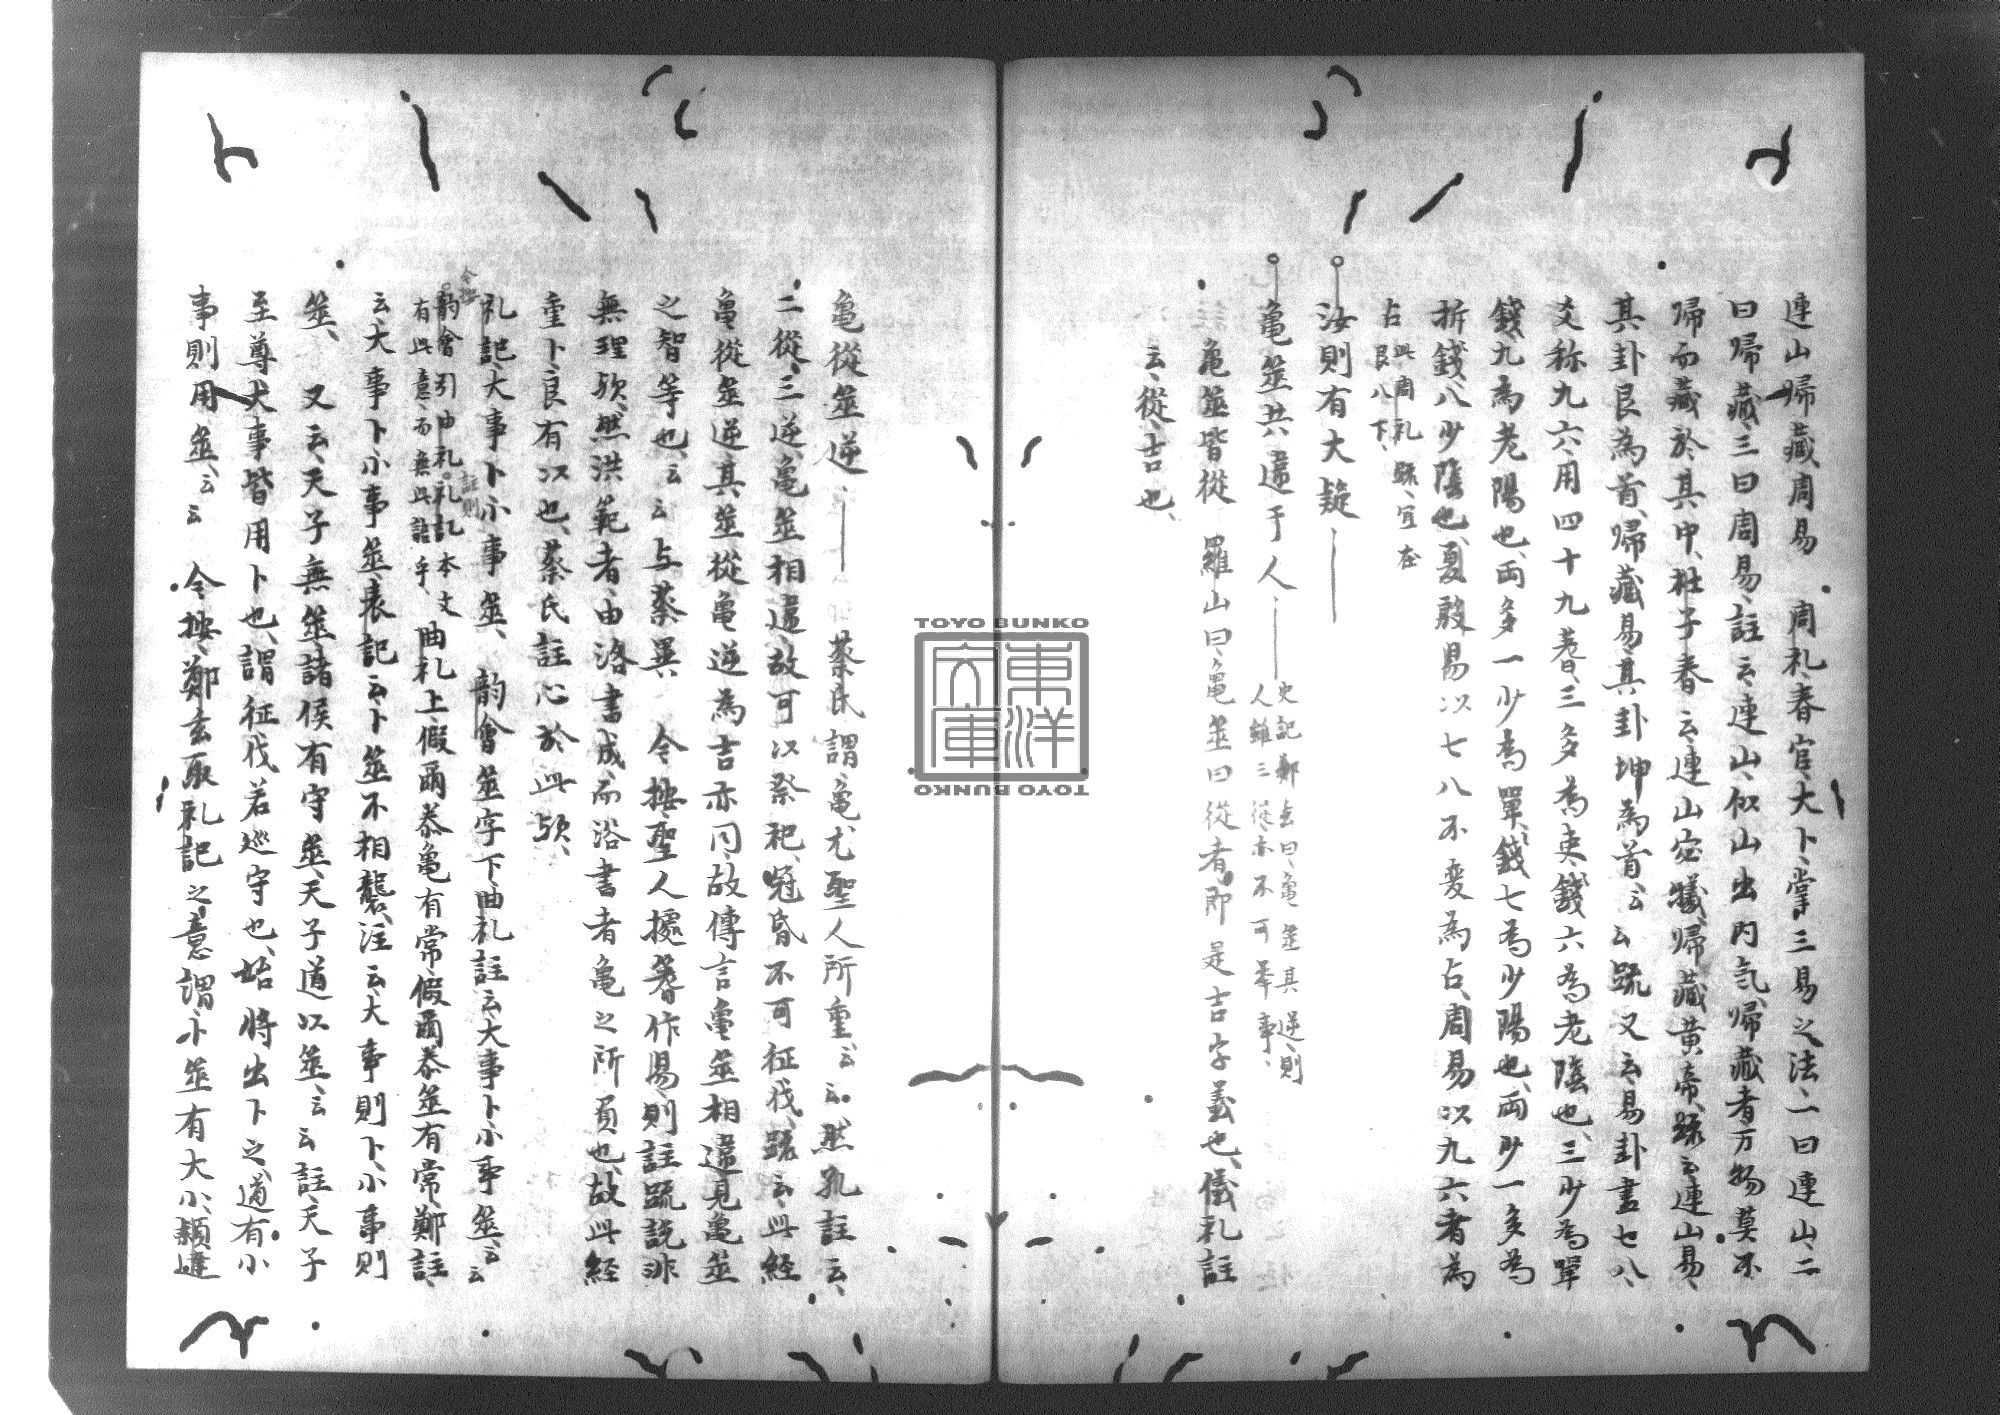 連山歸藏周易　周礼春官大卜掌三易之法一曰連山二
曰歸藏三曰周易註云連山似山出内気歸藏者万物莫不
歸而藏於其中杜子春云連山宓犠歸藏黄帝疏云連山易
其卦艮為首歸藏易其卦坤為首云云疏又云易卦畫七八
爻称九六用四十九蓍三多為交錢六為老陰也三少為單
錢九為老陽也両多一少為單錢七為少陽也両少一多為
折錢八少陰也夏殷易以七八不変為占周易以九六者為
占 此周礼疏宜在
艮八下
汝則有大疑
龜筮共違于人 史記鄭玄曰龜筮其逆則
人雖三從亦不可挙事
龜筮皆從　羅山曰龜筮曰從者即是吉字義也儀礼註
云從吉也
龜從筮逆　蔡氏謂龜尤聖人所重云云然孔註云
二從三逆龜筮相違故可以祭祀冠昏不可征伐疏云此経
龜從筮逆其筮從龜逆為吉亦同故傳言龜筮相違見龜筮
之智等也云云与蔡異　今按聖人據蓍作易則註疏説非
無理欤然洪範者由洛書成而洛書者龜之所負也故此経
重卜良有以也蔡氏註心於此欤
礼記大事卜小事筮　韵會筮字下曲礼註云大事卜小事筮云云
今按
韵會引曲礼礼記本文
註則
有此意而無此語乎
曲礼上假爾泰龜有常假爾泰筮有常鄭註
云大事卜小事筮表記云卜筮不相襲注云大事則卜小事則
筮　又云天子無筮諸侯有守筮天子道以筮云云註天子
至尊大事皆用卜也謂征伐若巡守也始將出卜之道有小
事則用筮云云　今按鄭玄取礼記之意謂卜筮有大小穎達
TOYO BUNKO
東洋文庫
TOYO BUNKO